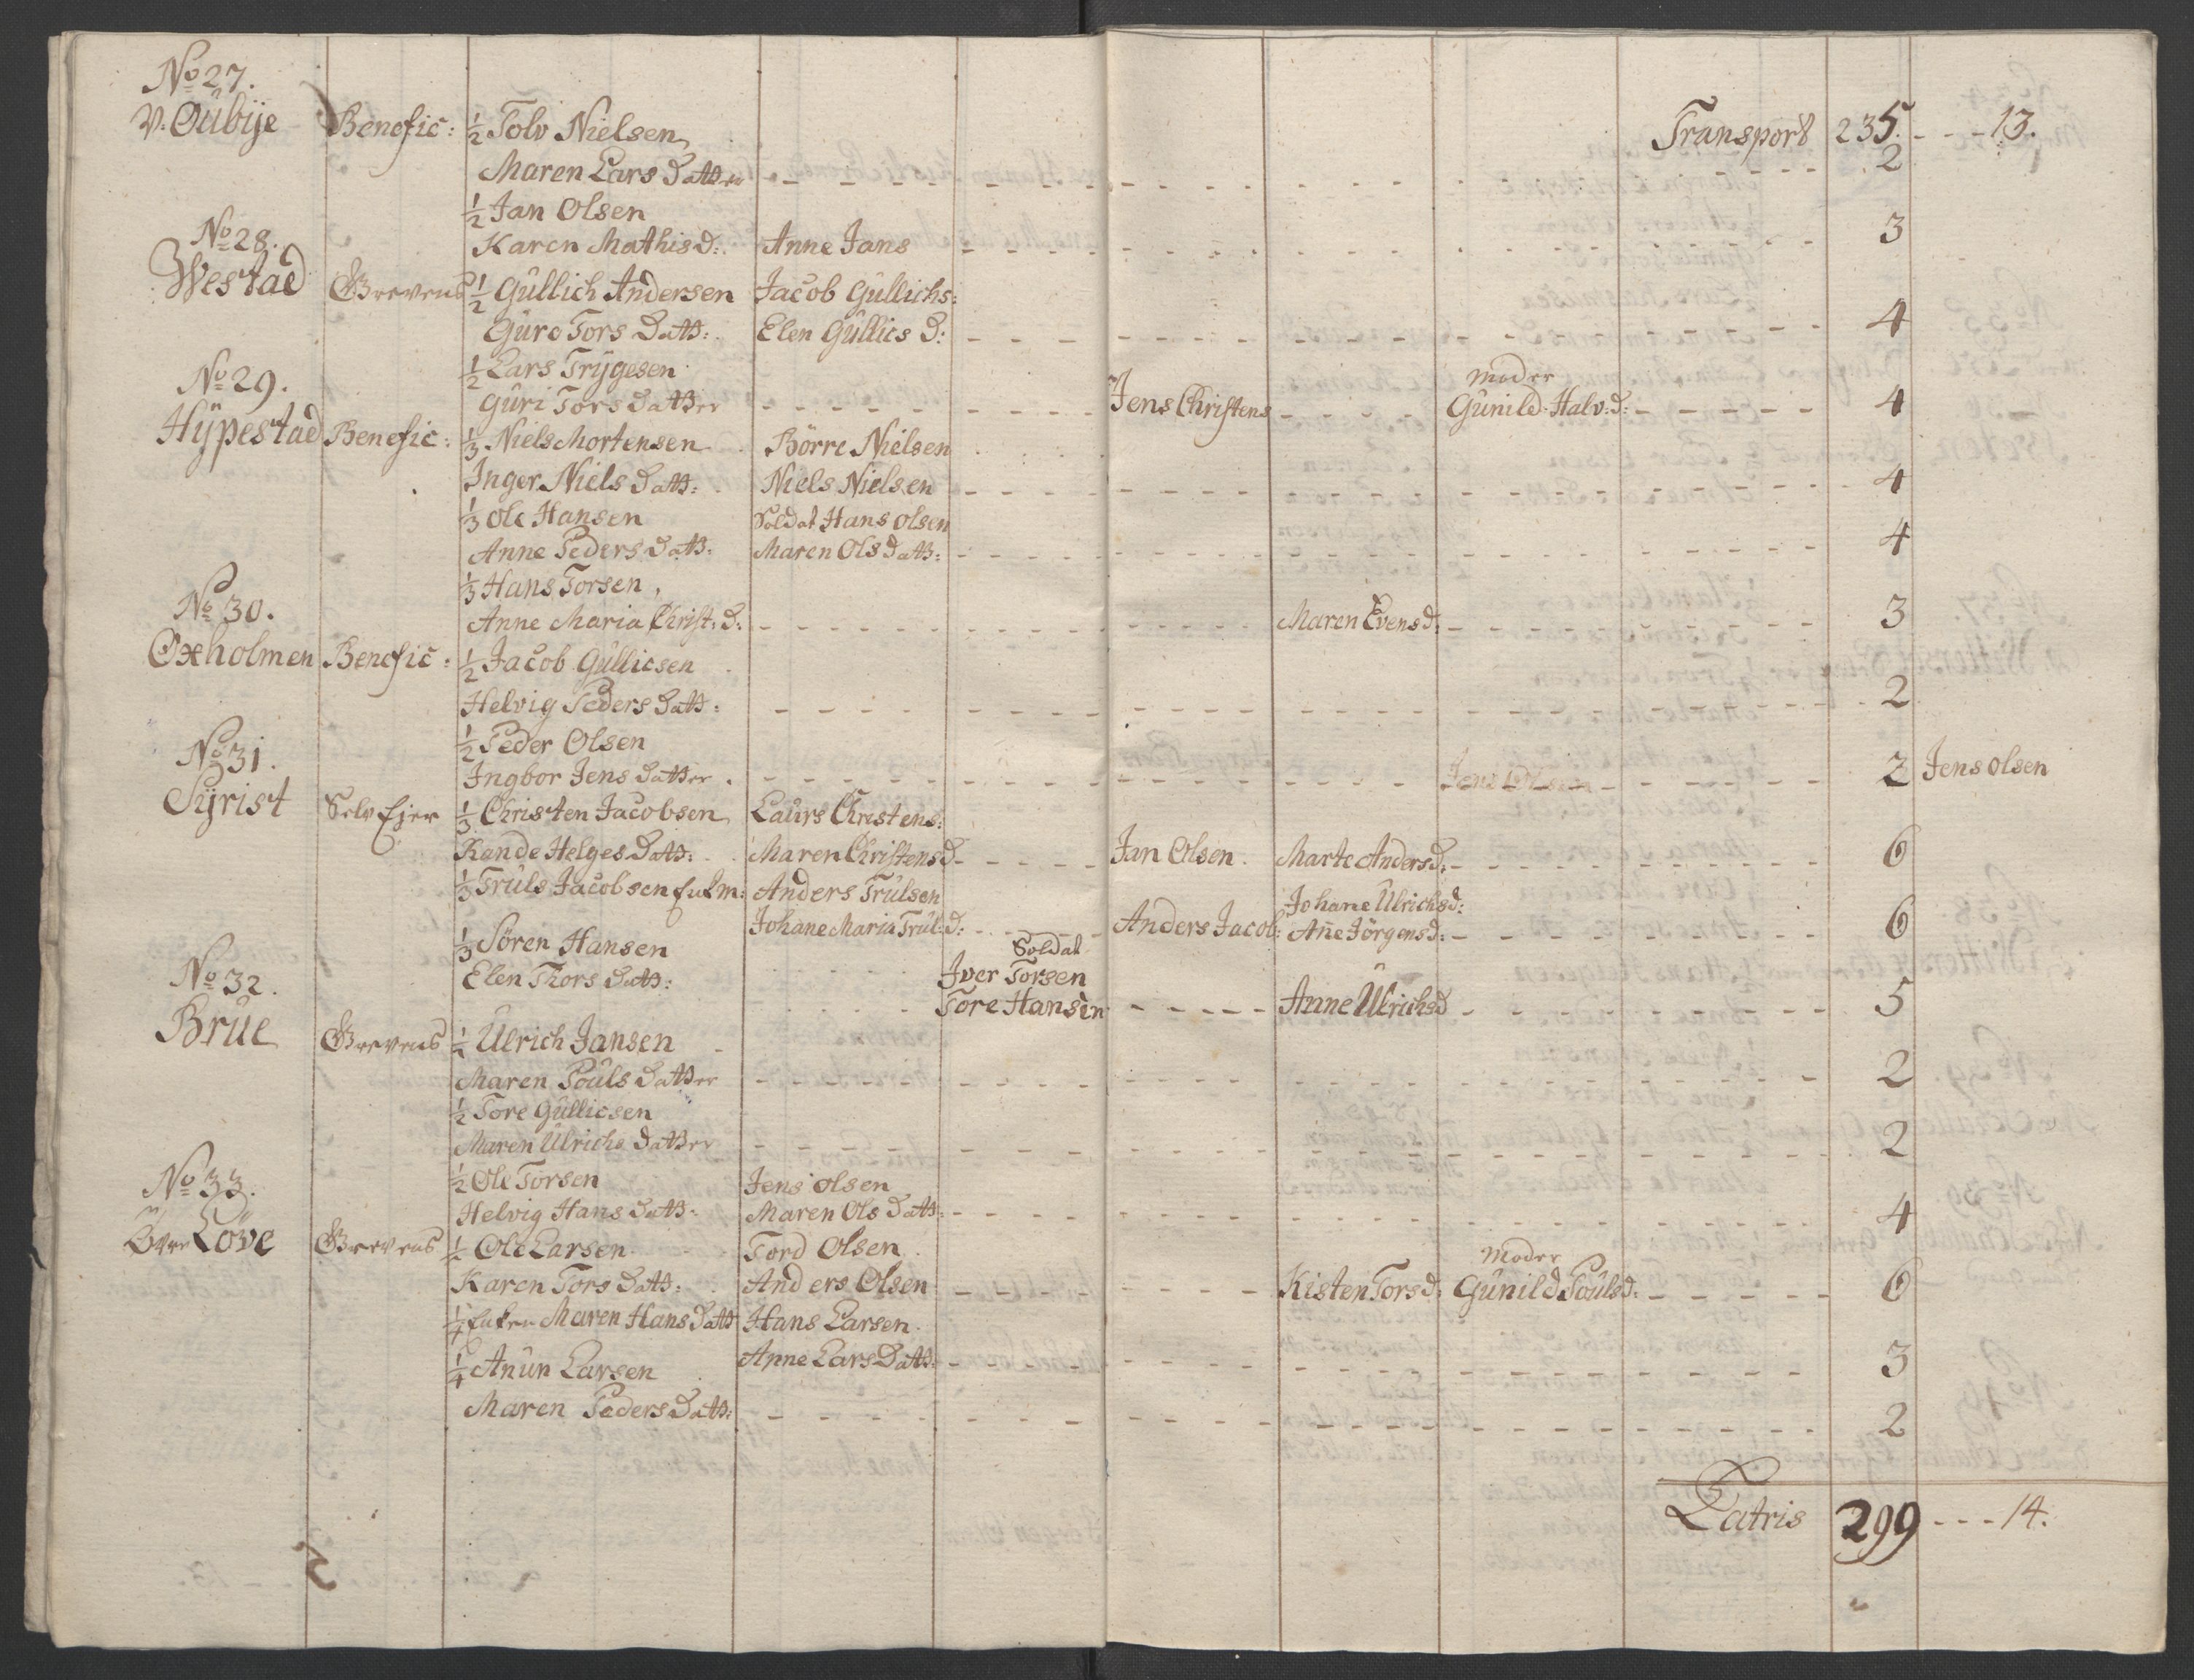 Transport 235. - - - 13.
No 27.
V. Oubÿe Benefic: ½ Tolv Nielsen
Maren Lars Datter 2
½ Jan Olsen
Karen Mathisd: Anne Jans 3
No 28.
Westad Grevens ½ Gullich Andersen Jacob Gullichs:
Guro Tors Datt: Elen Gullics D: 4
½ Lars Trÿgesen
Moder
Guri Tors Datter Jens Christens Gunild Halv:d: 4
No 29.
Hÿpestad Benefic: ⅓ Niels Mortensen Börre Nielsen
Inger Niels Datt: Niels Nielsen 4
⅓ Ole Hansen Soldat Hans Olsen
Anne Peders Datt: Maren Ols Datt: 4
⅓ Hans Torsen
Anne Maria Christ: D: Maren Evensd: 3
No 30.
Oxholmen Benefic: ½ Jacob Gullicsen
Helvig Peders Datt: 2
½ Peder Olsen
Ingbor Jens Datter Jens Olsen 2 Jens Olsen
No 31.
Sÿrist Selv Ejer ⅓ Christen Jacobsen Laurs Christens:
Rande Helges Datt: Maren Christensd Jan Olsen Marte Andersd: 6
⅓ Truls Jacobsen Enkm: Anders Trulsen
Johane Ulrichsd:
Johane Maria Trul:d: Anders Jacob: Ane Jörgensd: 6
⅓ Sören Hansen
Soldat
Elen Thors Datt: Iver Torsen
Tore Hansen Anne Ulrichsd 5
No 32.
Brue Grevens ½ Ulrich Jansen
Maren Pouls Datter 2
½ Tore Gullicsen
Maren Ulrichs Datter 2
½ Ole Torsen Jens Olsen
Helvig Hans Datt: Maren Ols Datt: 4
No 33.
Övre Löve Grevens ½ Ole Larsen Tord Olsen
Moder
Karen Tors Datt: Anders Olsen Kisten Torsd: Gunild Poulsd: 6
¼ Enken Maren Hans Datt Hans Larsen
Anne Lars Datt: 3
¼ Anun Larsen
Maren Peders Datt: 2
Latris 299 - - - 14.